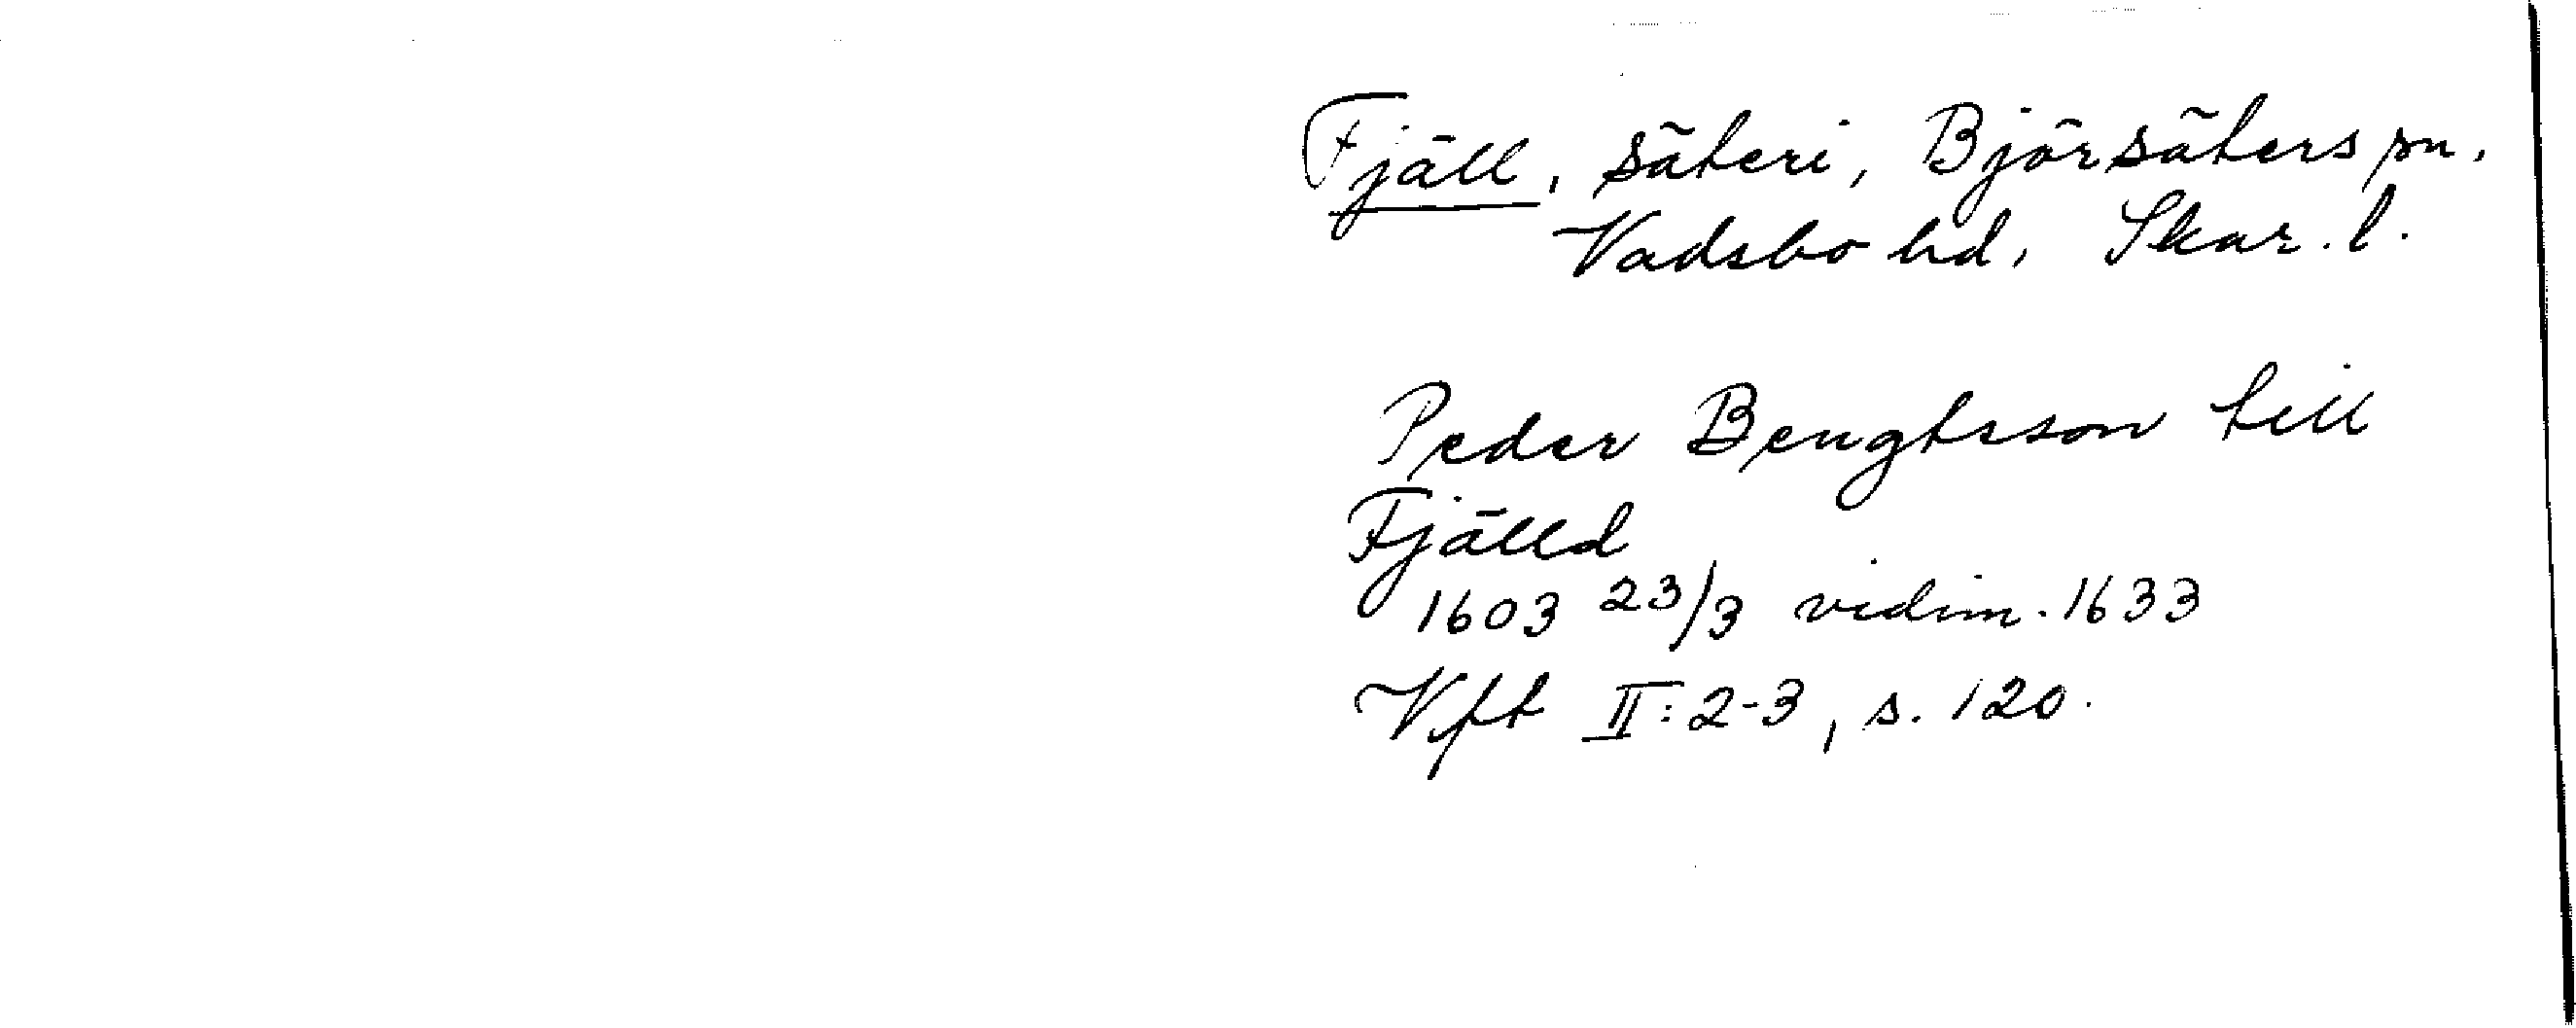 Fjäll, säteri, Björsäters sn,
Vadsbo hd, Skar. l.
Peder Bengtsson till
Fjälld
1603 23/3 vidim. 1633
Vft II: 2-3, s. 120.